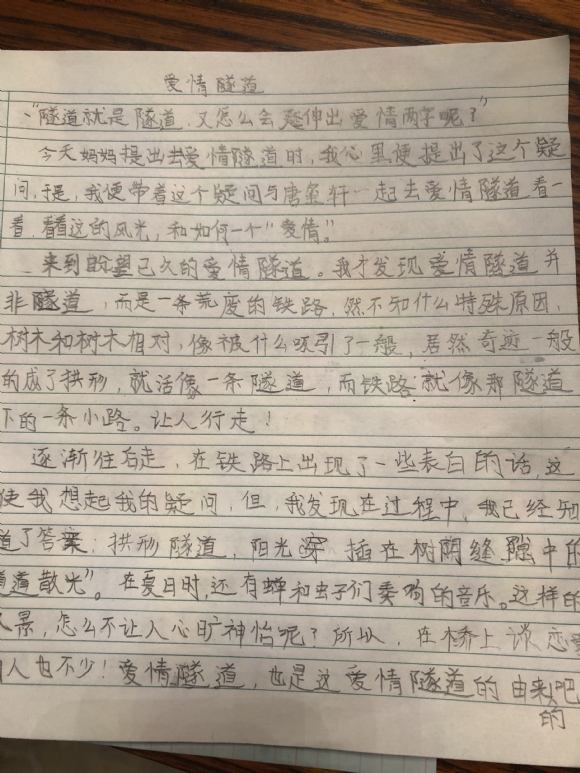 爱情隧道
“隧道就是隧道,又怎么会延伸出爱情两字呢?”
今天妈妈提出去爱情隧道时,我心里便提出了这个疑
问,于是,我便带着这个疑问与唐 轩一起去爱情隧道看一
看,看看这的风光,和如何一个“爱情”。
来到盼望已久的爱情隧道。我才发现爱情隧道并
非隧道,而是一条荒废的铁路,然不知什么特殊原因,
树木和树木相对,像被什么吸引了一般,居然奇迹一般
的成了拱形,就活像一条隧道,而铁路就像那隧道
下的一条小路。让人行走!
逐渐往后走,在铁路上出现了一些表白的话,这
使我想起我的疑问,但,我发现在过程中,我已经知
道了答案:拱形隧道,阳光穿插在树阴缝隙中的
道散光”。在夏日时,还有蝉和虫子们奏鸣的音乐。这样的
景,怎么不让人心旷神怡呢?所以,在桥上谈恋爱
人也不少!爱情隧道,也是这爱情隧道的由来吧
的